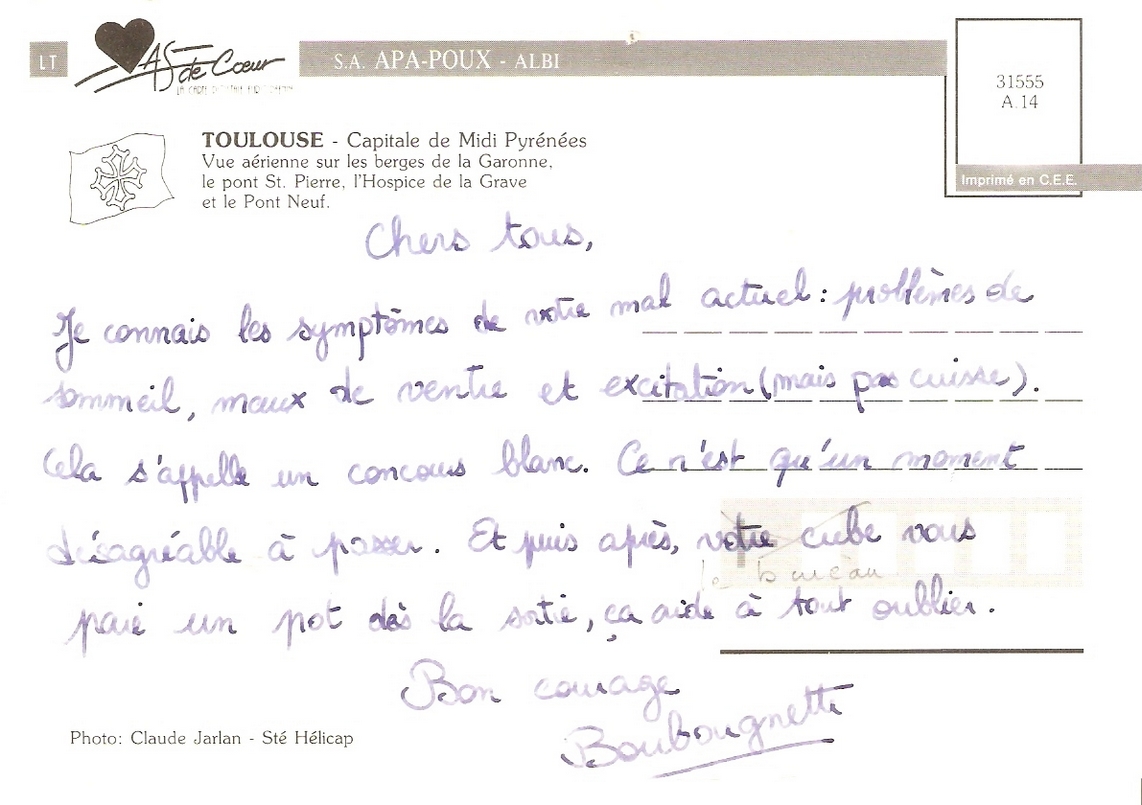 LT
As de Cœur
S.A. APA-POUX - ALBI
31555
A.14
TOULOUSE - Capitale de Midi Pyrénées
Vue aérienne sur les berges de la Garonne,
le pont St. Pierre, l'Hospice de la Grave
et le Pont Neuf.
Imprimé en C.E.E.
Chers tous,
Je connais les symptômes de votre mal actuel : problèmes de
sommeil, maux de ventre et excitation (mais pas cuisse).
Cela s'appelle un concours blanc. Ce n'est qu'un moment
désagréable à passer. Et puis après, votre cube vous
le bureau
paie un pot dès la sortie, ça aide à tout oublier.
Bon courage
Boubougnette
Photo: Claude Jarlan - Sté Hélicap